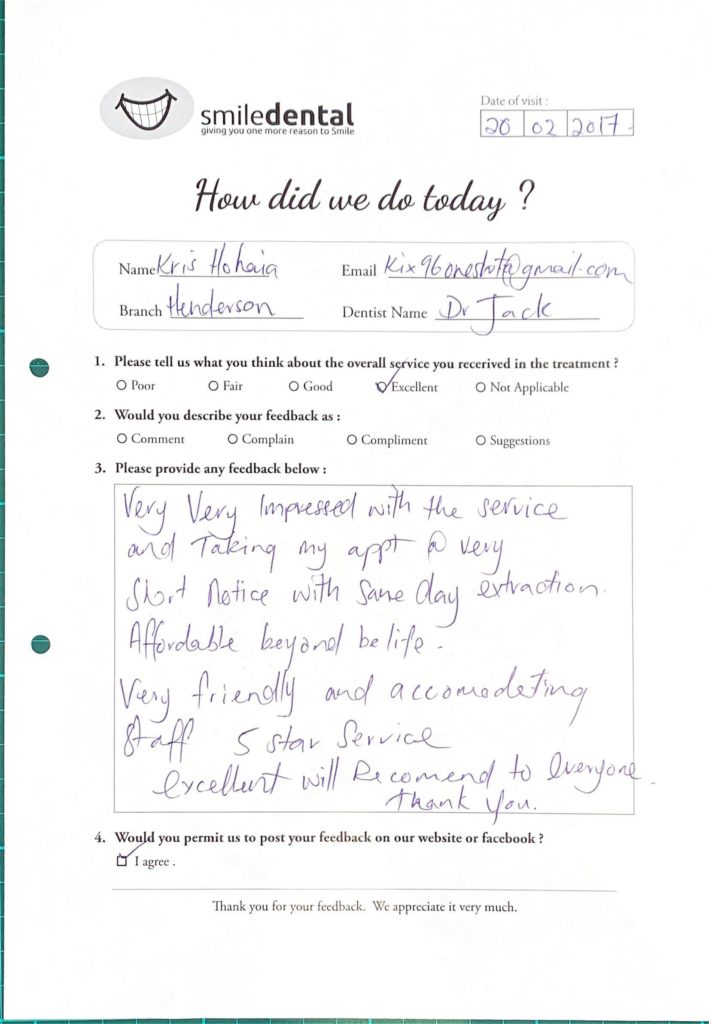 smiledental
giving you one more reason to Smile
Date of visit :
20 02 2017
How did we do today ?
Name Kris Hohaia Email Kix96oneshot@gmail.com
Branch Henderson Dentist Name Dr Jack
1. Please tell us what you think about the overall service you recerived in the treatment ?
Poor Fair Good Excellent Not Applicable
2. Would you describe your feedback as :
Comment Complain Compliment Suggestions
3. Please provide any feedback below :
Very Very Impressed with the service
and Taking my appt @ very
Short Notice with same day extraction.
Affordable beyond be life.
Very friendly and accomodeting
Staff 5 star Service
excellent will Recomend to Everyone.
Thank You.
4. Would you permit us to post your feedback on our website or facebook ?
I agree .
Thank you for your feedback. We appreciate it very much.